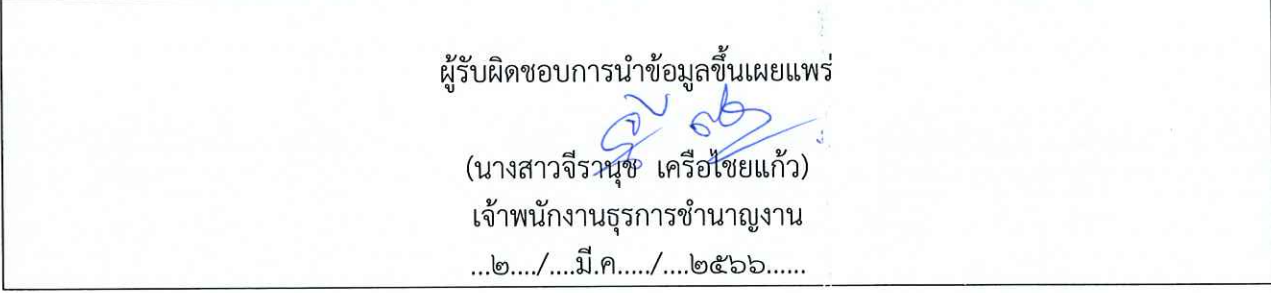 ผู้รับผิดชอบการนำข้อมูลขึ้นเผยแพร่
(นางสาวจีรานุช เครือไชยแก้ว)
เจ้าพนักงานธุรการชำนาญงาน
...๒..../....มี.ค...../....๒๕๖๖......